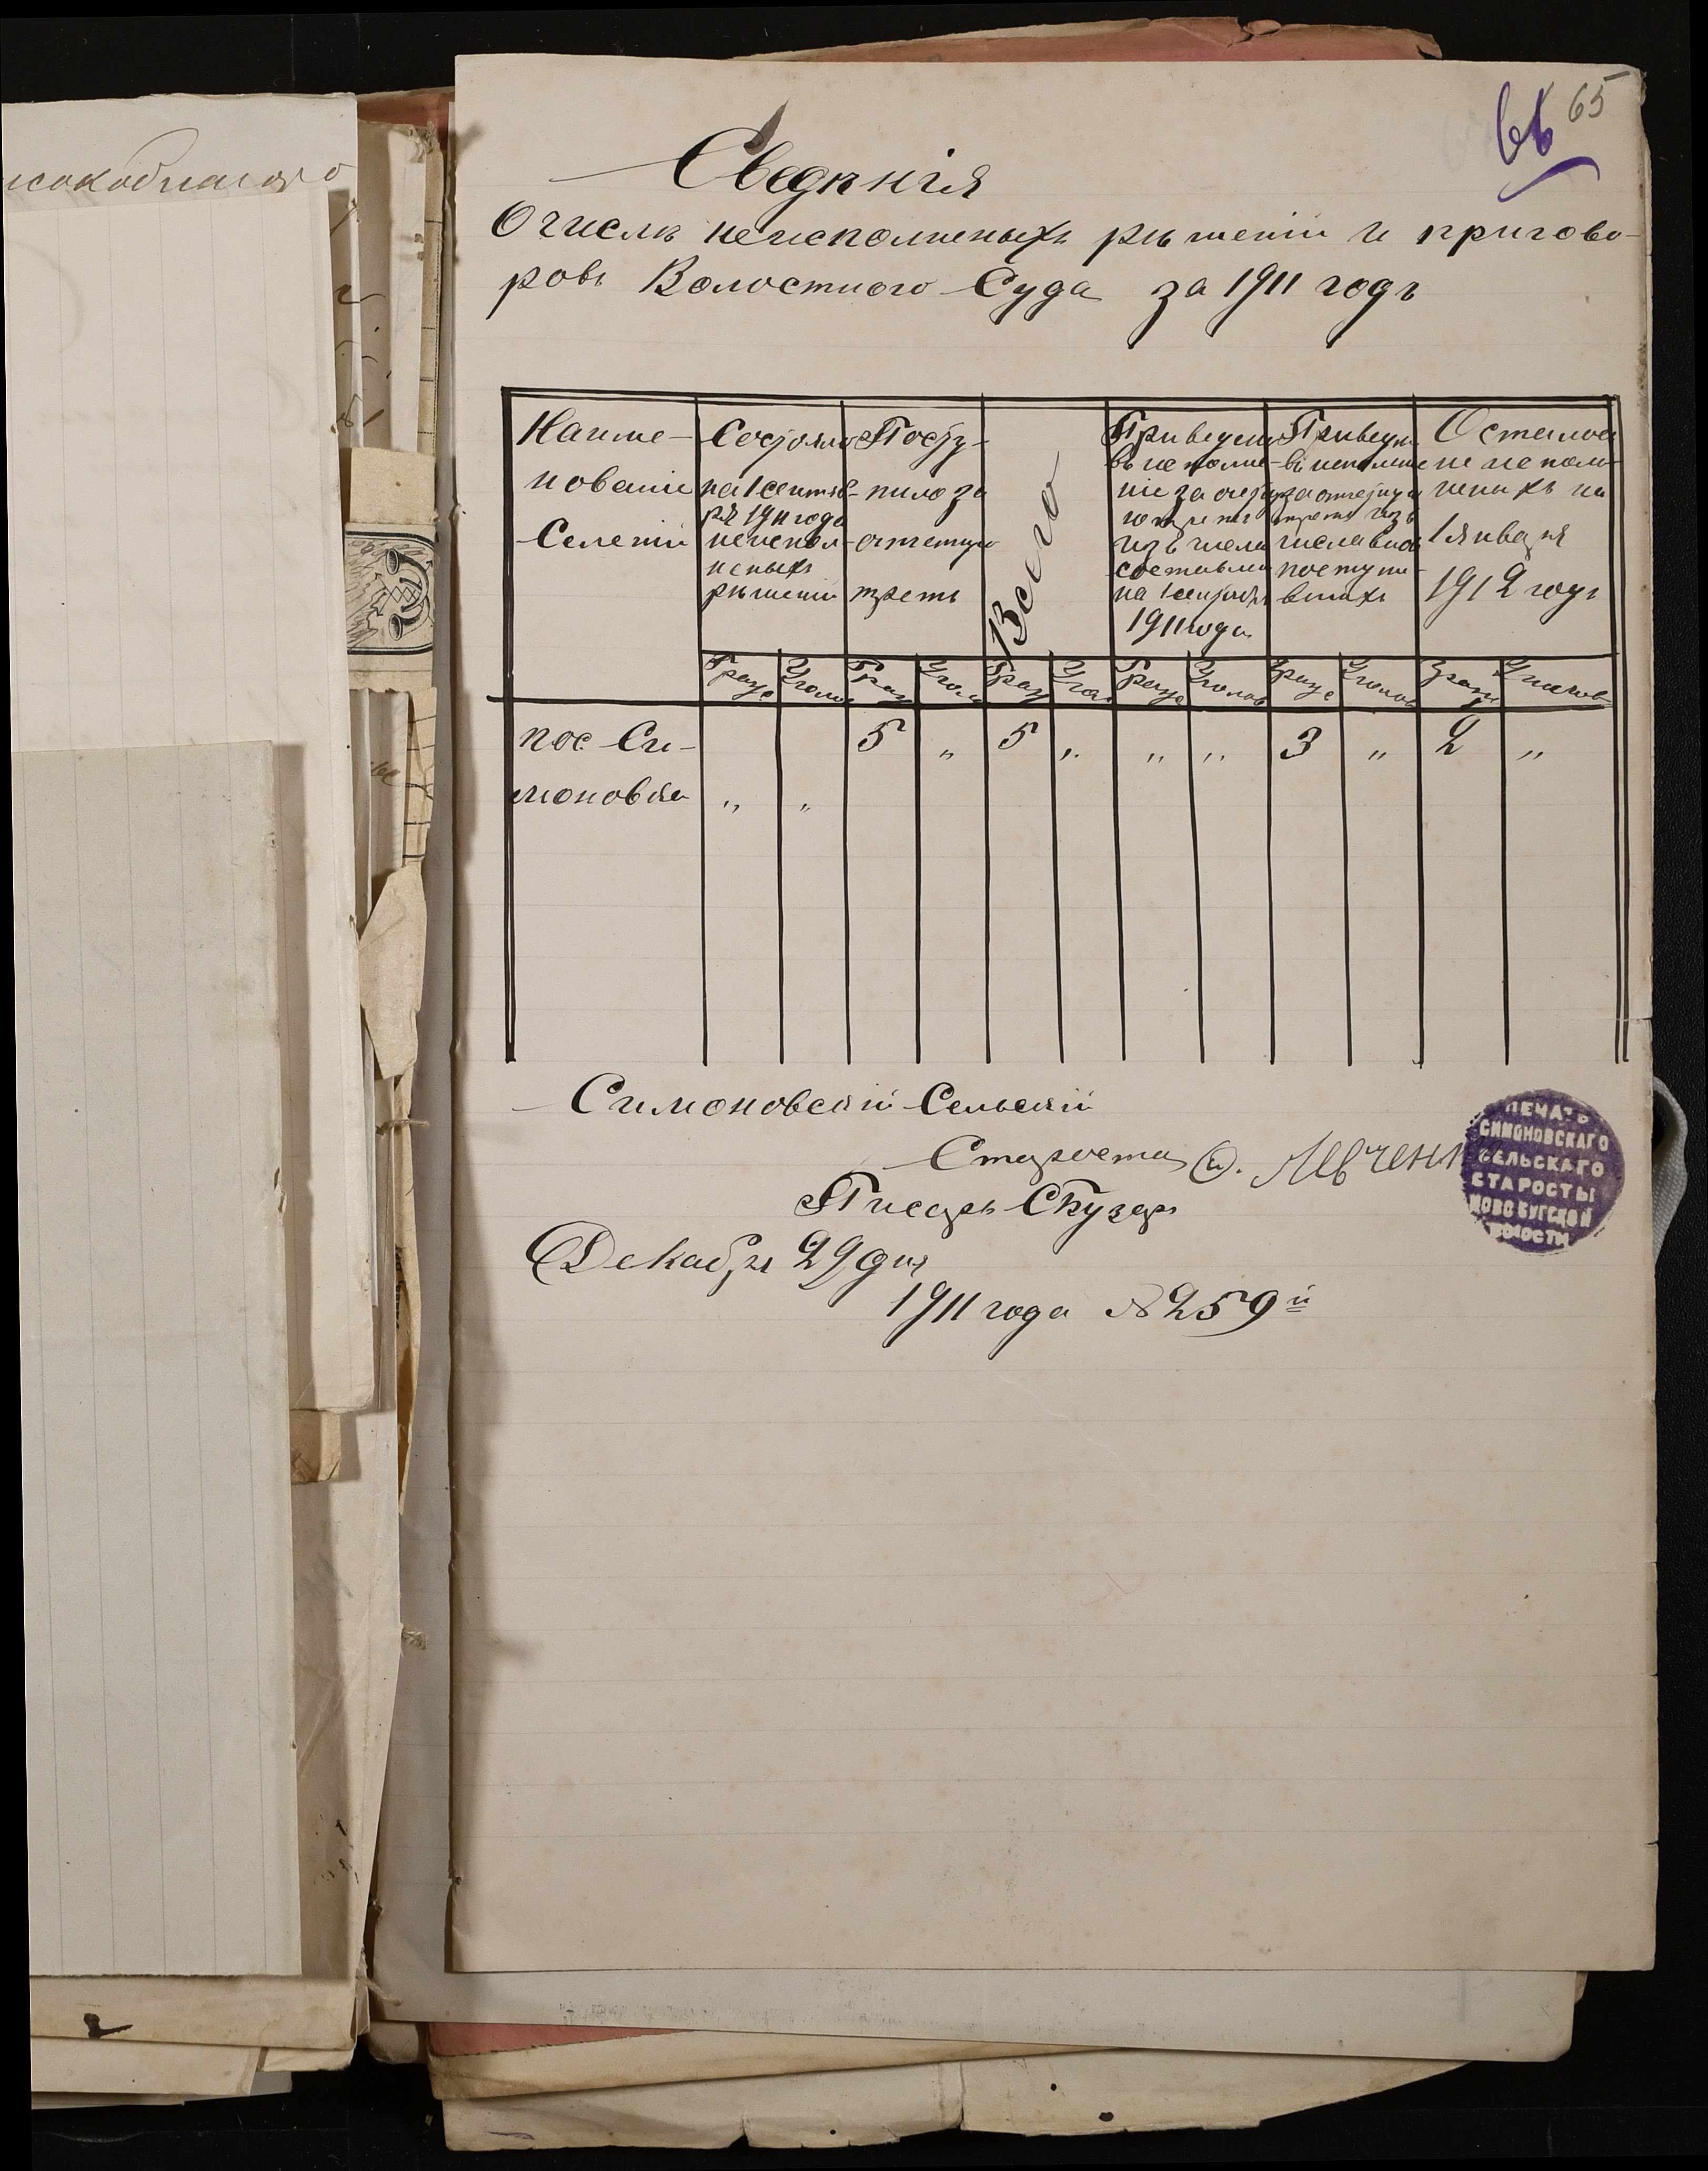 66 65
Сведѣнія
О числѣ неисполненыхъ рѣшеній и пригово-
ровъ Волостного Суда за 1911 годъ
Наиме-
нованіе
Селеній
Состояло
на 1 сентяб-
ря 1911 года
неиспол-
неныхъ
рѣшеній
Посту-
пило за
отчетную
треть
Всего
Приведено
въ исполне-
ніе за отчет
ную треть
изъ числа
составлен
на 1 сентября
1911 года
Приведен
въ исполне
за отчетную
треть изъ
числа вновь
поступи-
вшихъ
Осталось
не исполн-
неныхъ на
1 января
1912 годъ
Гражд Уголов Граж Уголо Граж Угол Гражд Уголов Гражд Уголов Гражд Уголов
пос Си- 5 „ 5 „ „ „ 3 „ 2 „
моновка „ „
Симоновскій Сельскій
Староста Ѳ. Левченк
Писарь СКузар
Декабря 29 дня
1911 года № 259й
ПЕЧАТЬ
СИМОНОВСКАГО
СЕЛЬСКАГО
СТАРОСТЫ
НОВОБУГСКОЙ
ВОЛОСТИ